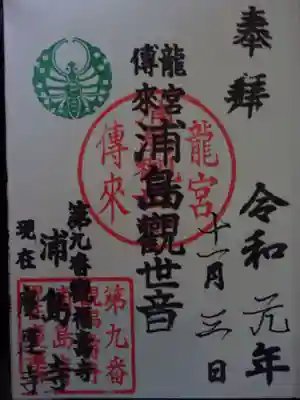 奉拝
令和元年
十一月三日
龍宮
傳來
浦島觀世音
龍宮
傳來
第九番
浦島寺
現在
第九番